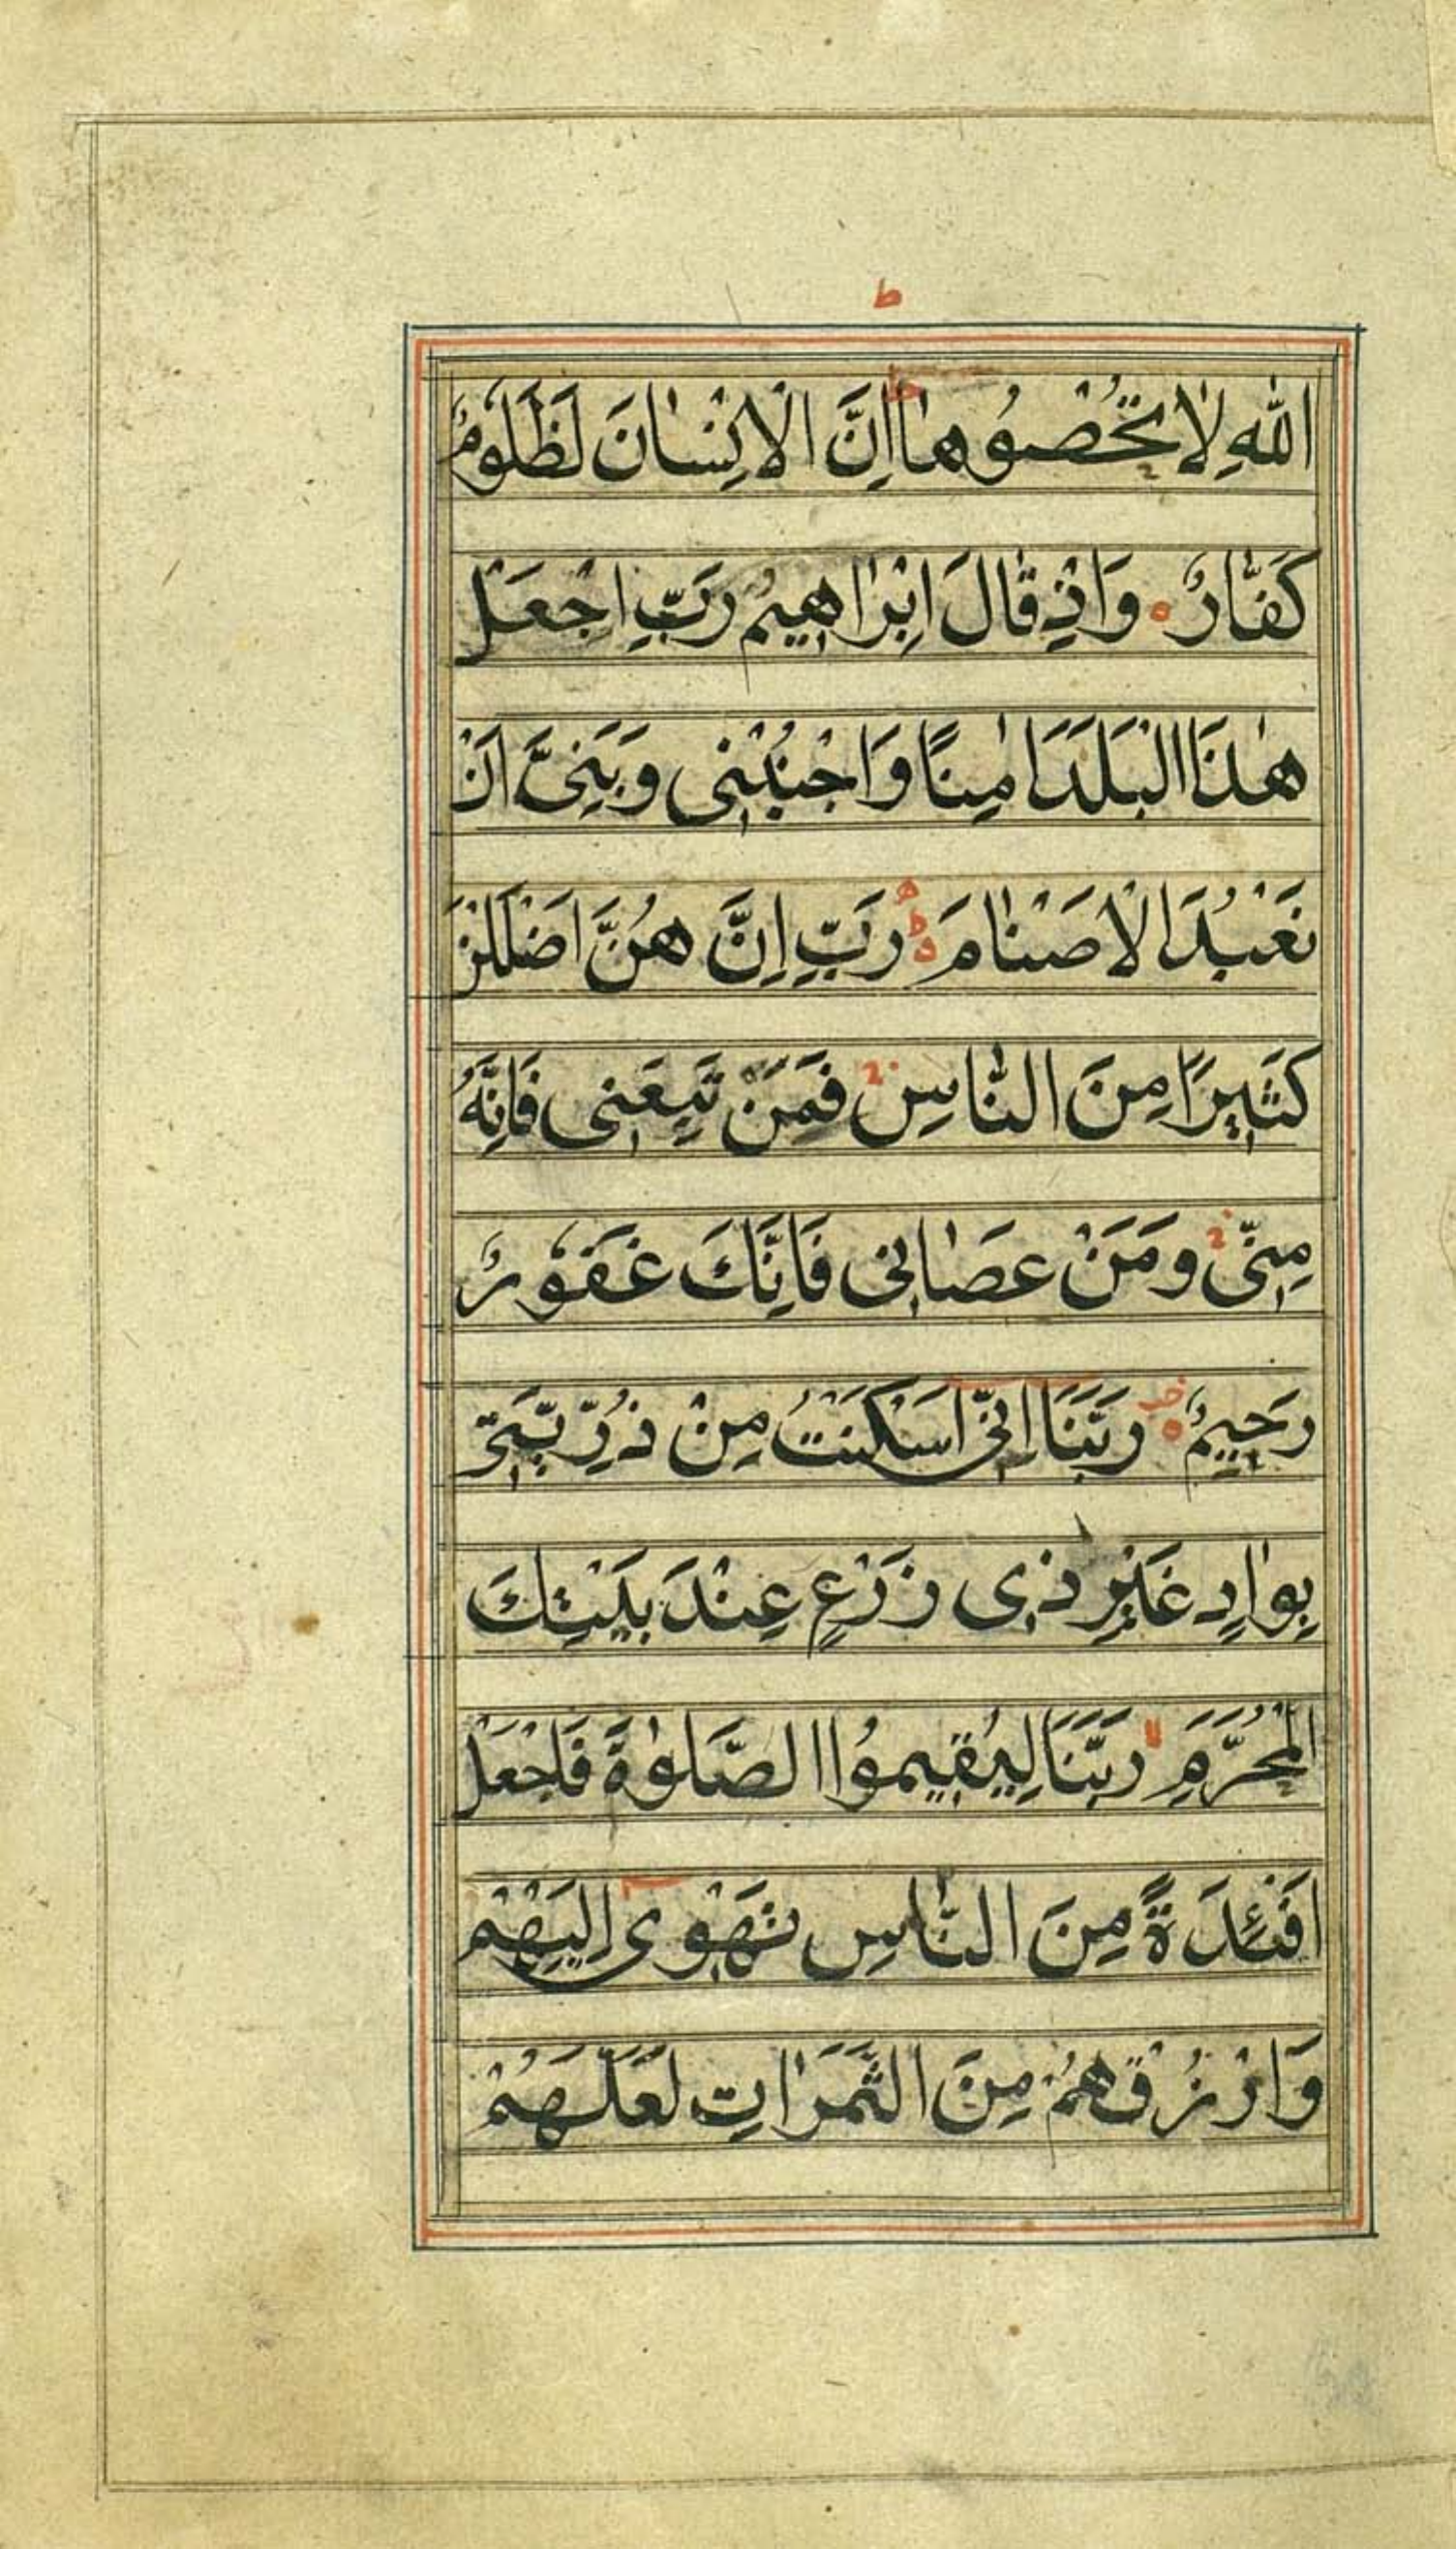 ط
اللهِ لَا تُحْصُوهَا اِنَّ الْاِنْسَانَ لَظَلُومٌ
كَفَّارٌ وَاِذْ قَالَ اِبْرَاهِيمُ رَبِّ اجْعَلْ
هٰذَا الْبَلَدَ اٰمِنًا وَاجْنُبْنِى وَبَنِىَّ اَنْ
نَعْبُدَ الْاَصْنَامَ رَبِّ اِنَّ هُنَّ اَضْلَلْنَ
كَثِيرًا مِنَ النَّاسِ فَمَنْ تَبِعَنِى فَاِنَّهُ
مِنِّى وَمَنْ عَصَانِى فَاِنَّكَ غَفُورٌ
رَحِيمٌ رَبَّنَا اِنِّى اَسْكَنْتُ مِنْ ذُرِّيَّتِى
بِوَادٍ غَيْرِ ذِى زَرْعٍ عِنْدَ بَيْتِكَ
الْمُحَرَّمِ رَبَّنَا لِيُقِيمُوا الصَّلٰوةَ فَاجْعَلْ
اَفْئِدَةً مِنَ النَّاسِ تَهْوِى اِلَيْهِمْ
وَارْزُقْهُمْ مِنَ الثَّمَرَاتِ لَعَلَّهُمْ